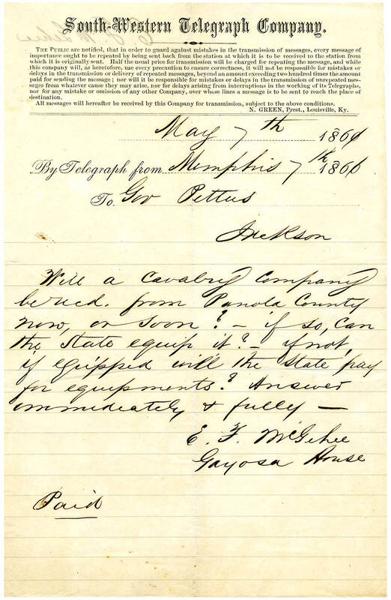 South-Western Telegraph Company.
THE PUBLIC are notified, that in order to guard against mistakes in the transmission of messages, every message of
importance ought to be repeated by being sent back from the station at which it is to be received to the station from
which it is originally sent. Half the usual price for transmission will be charged for repeating the message, and while
this company will, as heretofore, use every precaution to ensure correctness, it will not be responsible for mistakes or
delays in the transmission or delivery of repeated messages, beyond an amount exceeding two hundred times the amount
paid for sending the message; nor will it be responsible for mistakes or delays in the transmission of unrepeated mes-
sages from whatever cause they may arise, nor for delays arising from interruptions in the working of its Telegraphs,
nor for any mistake or omission of any other Company, over whose lines a message is to be sent to reach the place of
destination.
All messages will hereafter be received by this Company for transmission, subject to the above conditions.
N. GREEN, Prest., Louisville, Ky.
May 7th 1861
By Telegraph from Memphis 7th 1861
To Gov Pettus
Jackson
Will a Cavalry Company
be recd. from Panola County
now, or soon? – if so, can
the State equip it? – if not,
if eqipped will the State pay
for equipments? Answer
immediately & fully –
E. F. McGehee
Gayosa House
Paid